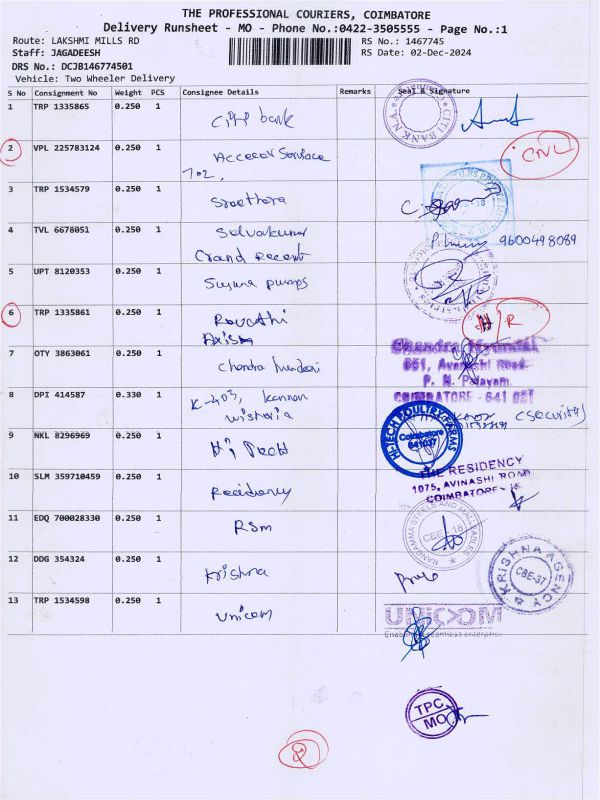 THE PROFESSIONAL COURIERS, COIMBATORE
Delivery Runsheet - MO - Phone No.:0422-3505555 - Page No.:1
Route: LAKSHMI MILLS RD RS No.: 1467745
Staff: JAGADEESH RS Date: 02-Dec-2024
DRS No.: DCJB146774501
Vehicle: Two Wheeler Delivery
S No Consignment No Weight PCS Consignee Details Remarks Seal & Signature
1 TRP 1335865 0.250 1 Citi bank CITI BANK N.A.
2 VPL 225783124 0.250 1 CNL
702,
3 TRP 1534579 0.250 1
4 TVL 6678051 0.250 1 Selvakumar 9600498089
5 UPT 8120353 0.250 1 pumps
6 TRP 1335861 0.250 1 Revathi R
7 OTY 3863061 0.250 1 Chandra Hundai Chandra Hyundai
651, Avanashi Road
P. N. Palayam
COIMBATORE - 641 037
8 DPI 414587 0.330 1 K-403, Kannan (Security)
wistoria
9 NKL 8296969 0.250 1 Hi Tech HI-TECH POULTRY FARMS
Coimbatore
641037
10 SLM 359710459 0.250 1 Residency THE RESIDENCY
1075, AVINASHI ROAD
COIMBATORE-
11 EDQ 700028330 0.250 1 RSM CBE-18
12 DDG 354324 0.250 1 Krishna KRISHNA AGENCY
CBE-37
13 TRP 1534598 0.250 1 Unicom UNICOM
Enabling seamless enterprise
TPC
MO